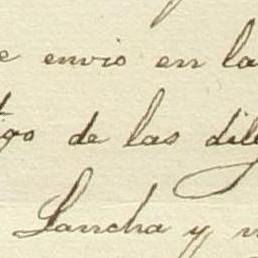 e envio en la
go de las dil
Lancha y